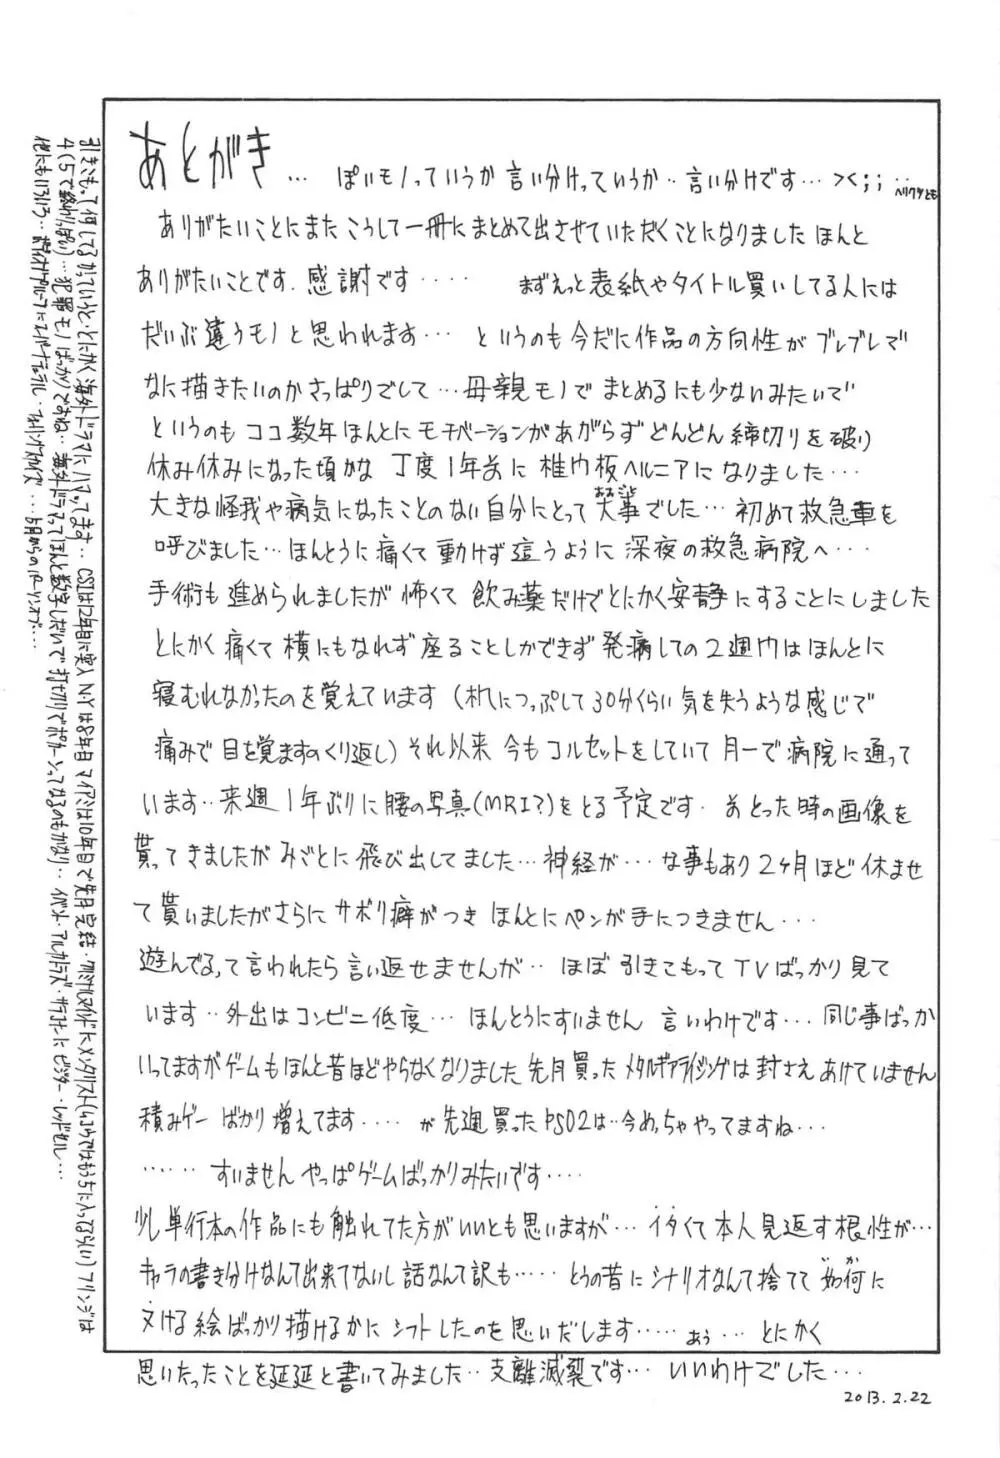 あとがき … ぽいモノっていうか 言い分けっていうか‥言い分けです… ><;;
ありがたいことにまた こうして一冊にまとめて出させていただくことになりました ほんと
ありがたいことです. 感謝です ‥‥ まずえっと表紙やタイトル買いしてる人には
だいぶ違うモノと思われます… というのも今だに作品の方向性が ブレブレで
なに描きたいのかさっぱりでして…母親モノで まとめるにも少ないみたいで
というのも ココ数年ほんとにモチベーションがあがらず どんどん 締切りを破り
休み休みになった頃かな 丁度1年前に 椎間板ヘルニアになりました…
大きな怪我や病気になったことのない自分にとって大事でした… 初めて救急車を
呼びました…ほんとうに痛くて動けず 這うように 深夜の救急病院へ…
手術も進められましたが 怖くて 飲み薬だけでとにかく安静にすることにしました
とにかく痛くて 横にもなれず座ることしかできず 発病しての2週間はほんとに
寝むれなかったのを覚えています (机につっぷして30分くらい気を失うような感じで
痛みで目を覚ますのくり返し) それ以来 今もコルセットをしていて 月一で病院に通って
います‥来週1年ぶりに腰の写真(MRI?)をとる予定です. 前とった時の画像を
貰ってきましたが みごとに飛び出してました…神経が… な事もあり2ヶ月ほど休ませ
て貰いましたがさらにサボリ癖がつき ほんとにペンが手につきません…
遊んでるって言われたら言い返せませんが‥ ほぼ引きこもってTVばっかり見て
います‥外出はコンビニ低度… ほんとうにすいません 言いわけです… 同じ事ばっか
いってますがゲームもほんと昔ほどやらなくなりました 先月買ったメタルギアライジングは封さえあけていません
積みゲーばかり増えてます‥‥ が先週買ったPSO2は‥今めっちゃやってますね…
…… すいません やっぱゲームばっかりみたいです‥‥
少し単行本の作品にも触れてた方がいいとも思いますが… イタくて本人見返す根性が…
キャラの書き分けなんて出来てないし 話なんて訳も‥‥ とうの昔にシナリオなんて捨てて如何に
ヌける絵ばっかり描けるかに シフトしたのを思いだします…… あぅ… とにかく
思いたったことを延延と書いてみました… 支離滅裂です… いいわけでした…
2013.2.22
引きこもって何してるかっていうと・とにかく海外ドラマにハマってます‥ CSIは12年目に突入 N.Yは8年目 マイアミは10年目で先月完結・クリミナルマインドにメンタリスト フリンジは
4(5で終わりっぽい)… 犯罪モノばっかりですね‥ 海外ドラマってほんと数字しだいで打ち切りでポカーンってなるのもかなり‥ イベント・アルカトラズ・サラコナーにビジター・レッドセル…
他にもいろいろ‥